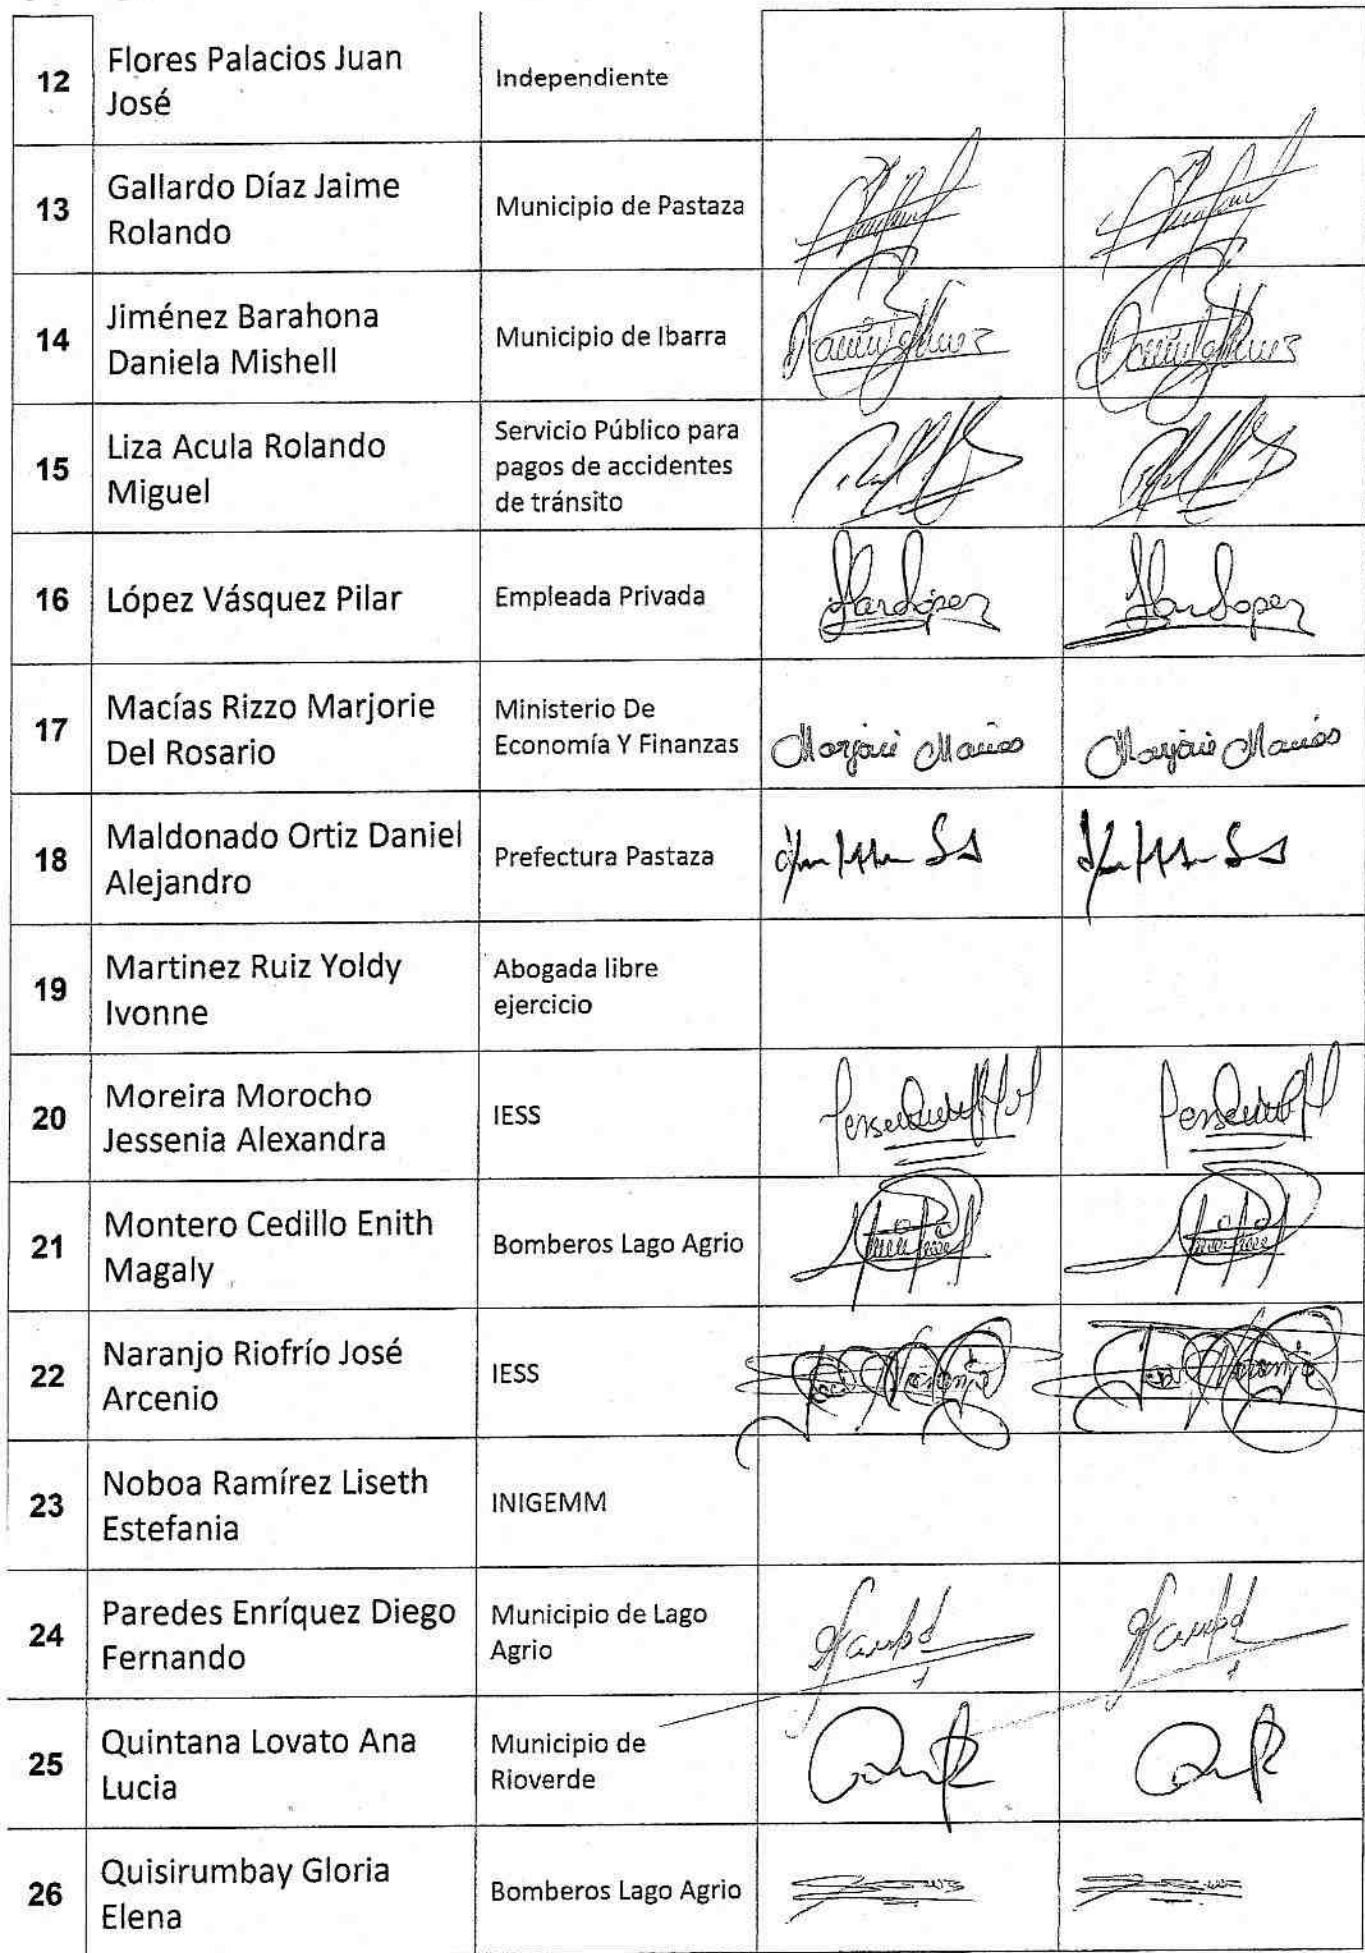 12
Flores Palacios Juan
José
Independiente
13
Gallardo Díaz Jaime
Rolando
Municipio de Pastaza
14
Jiménez Barahona
Daniela Mishell
Municipio de Ibarra
15
Liza Acula Rolando
Miguel
Servicio Público para
pagos de accidentes
de tránsito
16
López Vásquez Pilar
Empleada Privada
17
Macías Rizzo Marjorie
Del Rosario
Ministerio De
Economía Y Finanzas
18
Maldonado Ortiz Daniel
Alejandro
Prefectura Pastaza
19
Martinez Ruiz Yoldy
Ivonne
Abogada libre
ejercicio
20
Moreira Morocho
Jessenia Alexandra
IESS
21
Montero Cedillo Enith
Magaly
Bomberos Lago Agrio
22
Naranjo Riofrío José
Arcenio
IESS
23
Noboa Ramírez Liseth
Estefania
INIGEMM
24
Paredes Enríquez Diego
Fernando
Municipio de Lago
Agrio
25
Quintana Lovato Ana
Lucia
Municipio de
Rioverde
26
Quisirumbay Gloria
Elena
Bomberos Lago Agrio